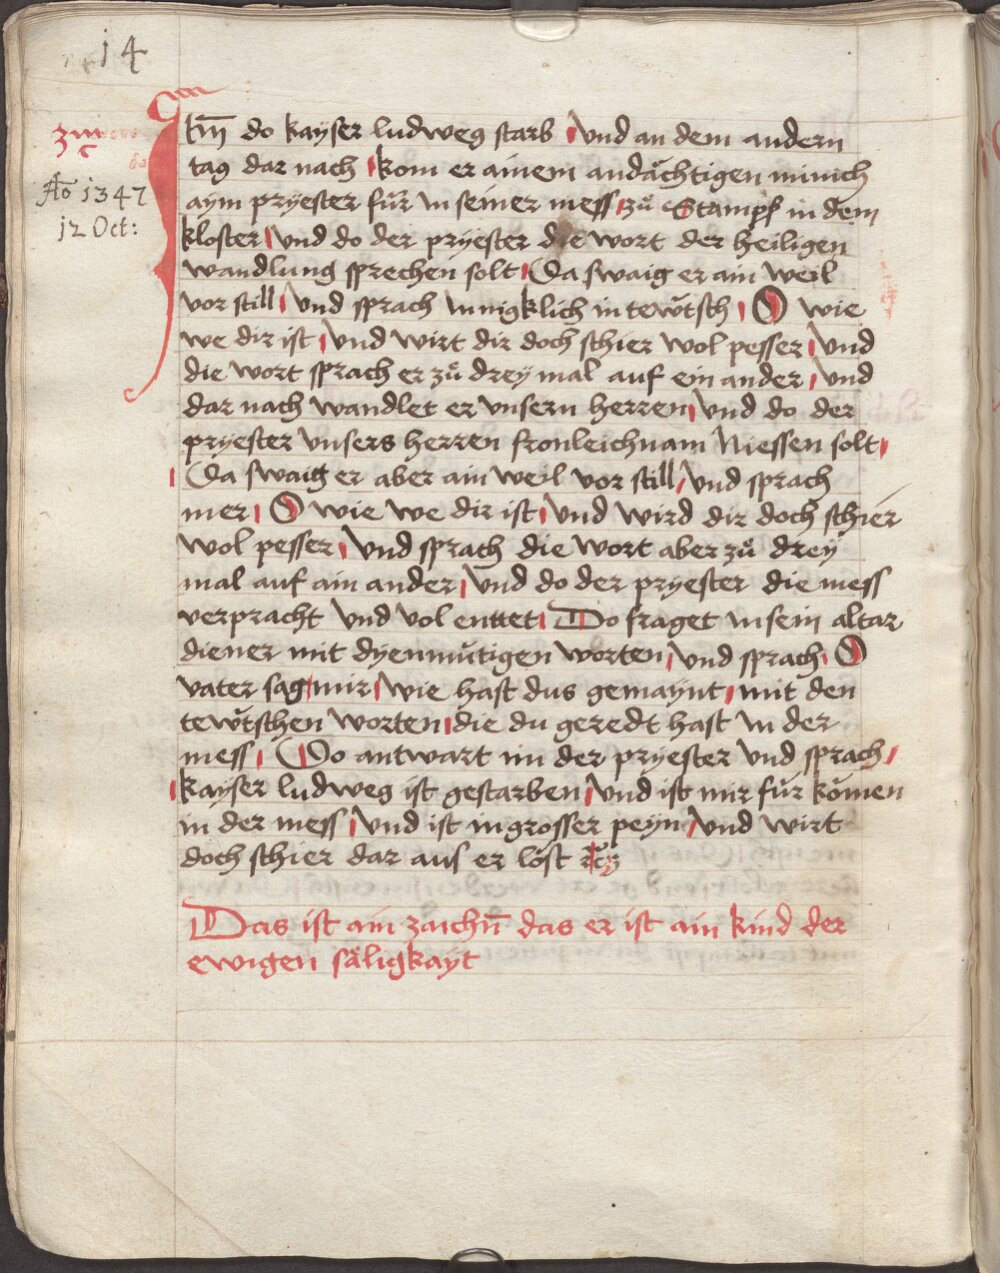 14
Ao 1347
12 Oct:
Itm̄ do kayser ludweg starb Vnd an dem andern
tag dar nach kom er ainem andächtigen münich
aym pryester für In seiner mess zů Stampf in dem
kloster Vnd do der pryester die wort der heiligen
wandlung sprechen solt Da swaig er ain weil
vor still Vnd sprach Innigklich in tewtsch O wie
we dir ist Vnd wirt dir doch schier wol pesser Vnd
die wort sprach er zů drey mal auf ein ander Vnd
dar nach wandlet er vnsern herren Vnd do der
pryester vnsers herren fronleichnam Niessen solt
Da swaig er aber ain weil vor still Vnd sprach
mer O wie we dir ist Vnd wird dir doch schier
wol pesser Vnd sprach die wort aber zů drey
mal auf ain ander Vnd do der pryester die mess
verpracht Vnd vol enttet Do fraget In sein altar
diener mit dyenmütigen worten Vnd sprach O
vater sag mir wie hast dus gemaynt mit den
tewtschen worten die du geredt hast In der
mess Do antwart im der pryester Vnd sprach
kayser ludweg ist gestarben Vnd ist mir für kömen
in der mess Vnd ist in grosser peyn Vnd wirt
doch schier dar aus er löst
Das ist ain zaichn̄ das er ist ain kind der
ewigen säligkayt